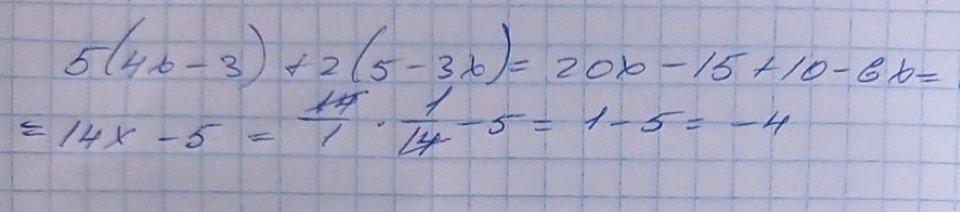 5(4x-3)+2(5-3x)=20x-15+10-6x=
=14x-5=14/1·1/14-5=1-5=-4